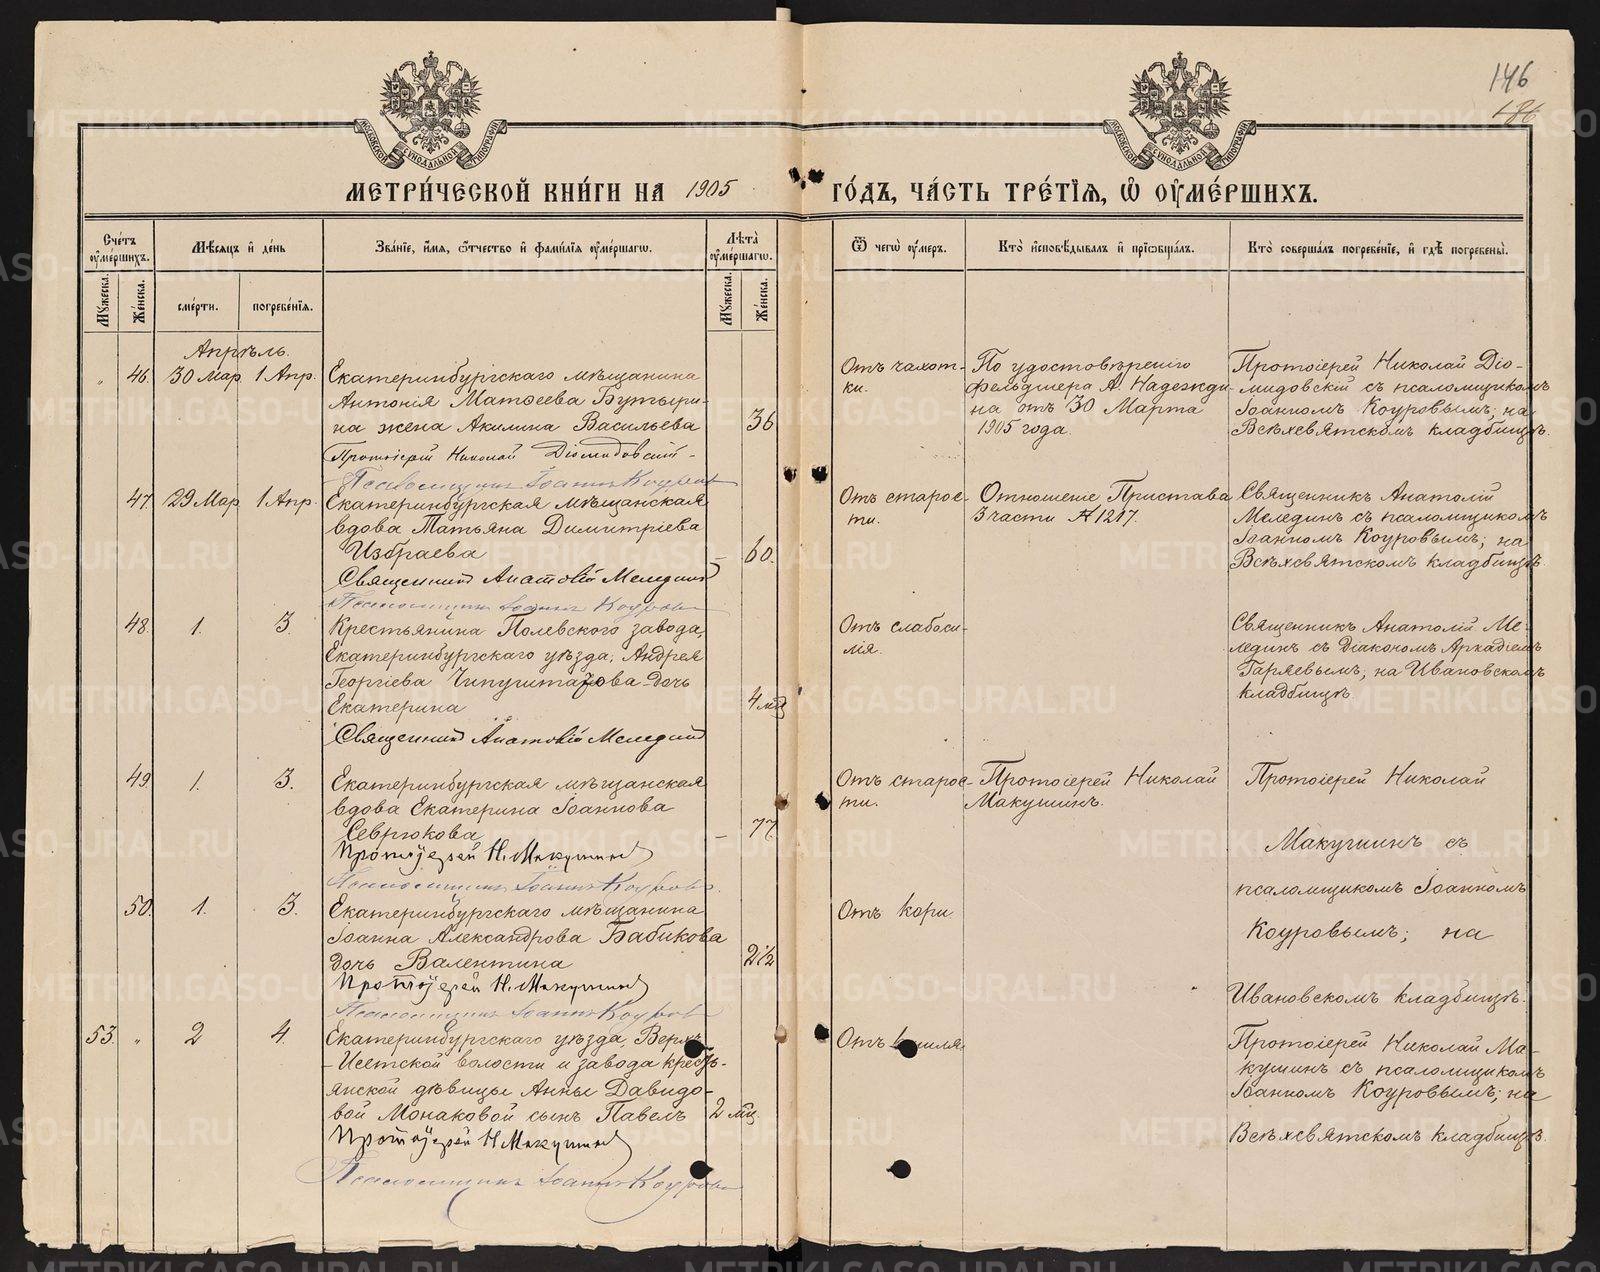 146
186
МОСКОВСКОЙ СѴНОДАЛЬНОЙ ТИПОГРАФІИ
МОСКОВСКОЙ СѴНОДАЛЬНОЙ ТИПОГРАФІИ
МЕТРИ́ЧЕСКОЙ КНИ́ГИ НА 1905 ГО́ДЪ, ЧА́СТЬ ТРЕ́ТІѦ, Ѡ ОУМЕ́РШИХЪ.
Сче́тъ оуме́ршихъ.
Мѣ́сяцъ и де́нь
Зва́ніе, и́мя, о́тчество и фами́лія оуме́ршагѡ.
Лѣта̀ оуме́ршагѡ.
Ѿ чегѡ̀ оу́меръ.
Кто̀ исповѣ́дывалъ и пріѡбща́лъ.
Кто̀ соверша́лъ погребе́ніе, и гдѣ̀ погребены̀.
Мꙋ́жеска. Же́нска.
сме́рти.
погребе́нія.
Мꙋ́жеска. Же́нска.
Апрѣль.
" 46. 30 Мар. 1 Апр. Екатеринбургскаго мѣщанина
Антонія Матѳеева Бутыри-
на жена Акилина Васильева 36
Протоіерей Николай Діомидовскій
Псаломщикъ Іоаннъ Коуровъ
Отъ чахот-
ки.
По удостовѣренію
фельдшера А. Надежди-
на отъ 30 Марта
1905 года.
Протоіерей Николай Діо-
мидовскій съ псаломщикомъ
Іоанномъ Коуровымъ; на
Всѣхсвятскомъ кладбищѣ.
47. 29 Мар. 1 Апр. Екатеринбургская мѣщанская
вдова Татьяна Димитріева
Избраева - 60.
Священникъ Анатолій Мелединъ
Псаломщикъ Іоаннъ Коуровъ
Отъ старос-
ти.
Отношеніе Пристава
3 части № 1217.
Священникъ Анатолій
Мелединъ съ псаломщикомъ
Іоанномъ Коуровымъ; на
Всѣхсвятскомъ кладбищѣ.
48. 1. 3. Крестьянина Полевского завода,
Екатеринбургскаго уѣзда, Андрея
Георгіева дочь
Екатерина 4 мц.
Священникъ Анатолій Мелединъ
Отъ слабоси-
лія.
Священникъ Анатолій Ме-
лединъ съ Діакономъ Аркадіемъ
Гаряевымъ; на Ивановскомъ
кладбищѣ.
49. 1. 3. Екатеринбургская мѣщанская
вдова Екатерина Іоаннова
Севрюкова - 77.
Протоіерей Н. Макушинъ
Псаломщикъ Іоаннъ Коуровъ.
Отъ старос-
ти.
Протоіерей Николай
Макушинъ.
Протоіерей Николай
Макушинъ съ
псаломщикомъ Іоанномъ
Коуровымъ; на
Ивановскомъ кладбищѣ.
50. 1. 3. Екатеринбургскаго мѣщанина
Іоанна Александрова Бабикова
дочь Валентина 2½
Протоіерей Н. Макушинъ
Псаломщикъ Іоаннъ Коуровъ
Отъ кори.
53. " 2 4. Екатеринбургскаго уѣзда, Верхъ-
-Исетской волости и завода кресть-
янской дѣвицы Анны Давидо-
вой Монаковой сынъ Павелъ 2 мц.
Протоіерей Н. Макушинъ
Псаломщикъ Іоаннъ Коуровъ
Отъ кашля.
Протоіерей Николай Ма-
кушинъ съ псаломщикомъ
Іоанномъ Коуровымъ; на
Всѣхсвятскомъ кладбищѣ.
METRIKI.GASO-URAL.RU